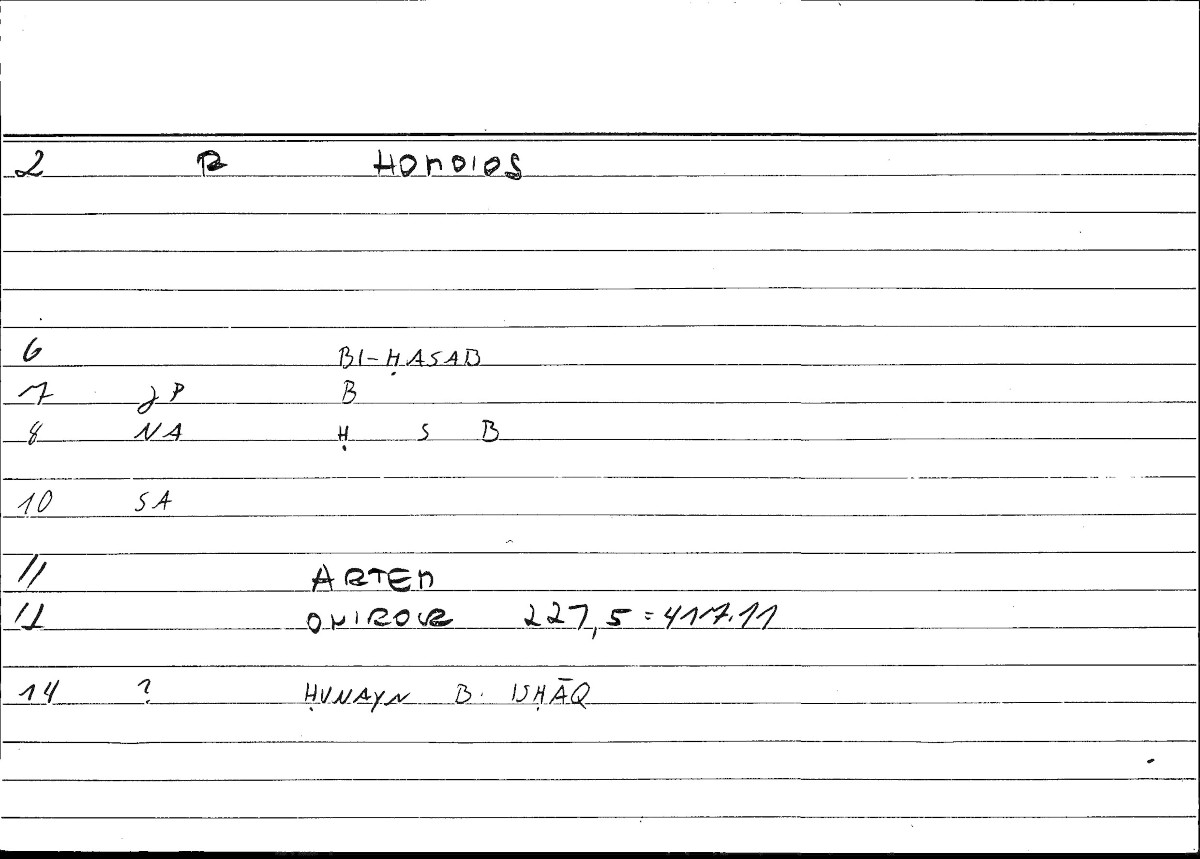 2 R HOMOIOS
6 BI-ḤASAB
7 JP B
8 NA Ḥ S B
10 SA
11 ARTEM
12 ONIROCR 227,5 = 417.11
14 ? ḤUNAYN B. ISḤĀQ